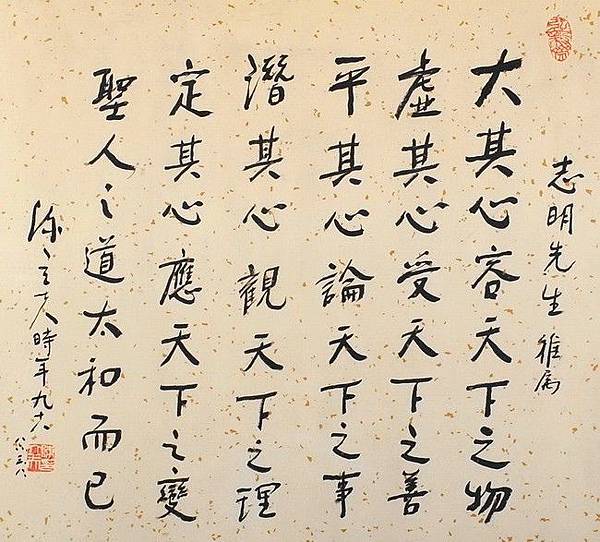 志明先生雅属
大其心容天下之物
虛其心受天下之善
平其心論天下之事
潛其心觀天下之理
定其心應天下之變
聖人之道太和而已
陳立夫時年九十